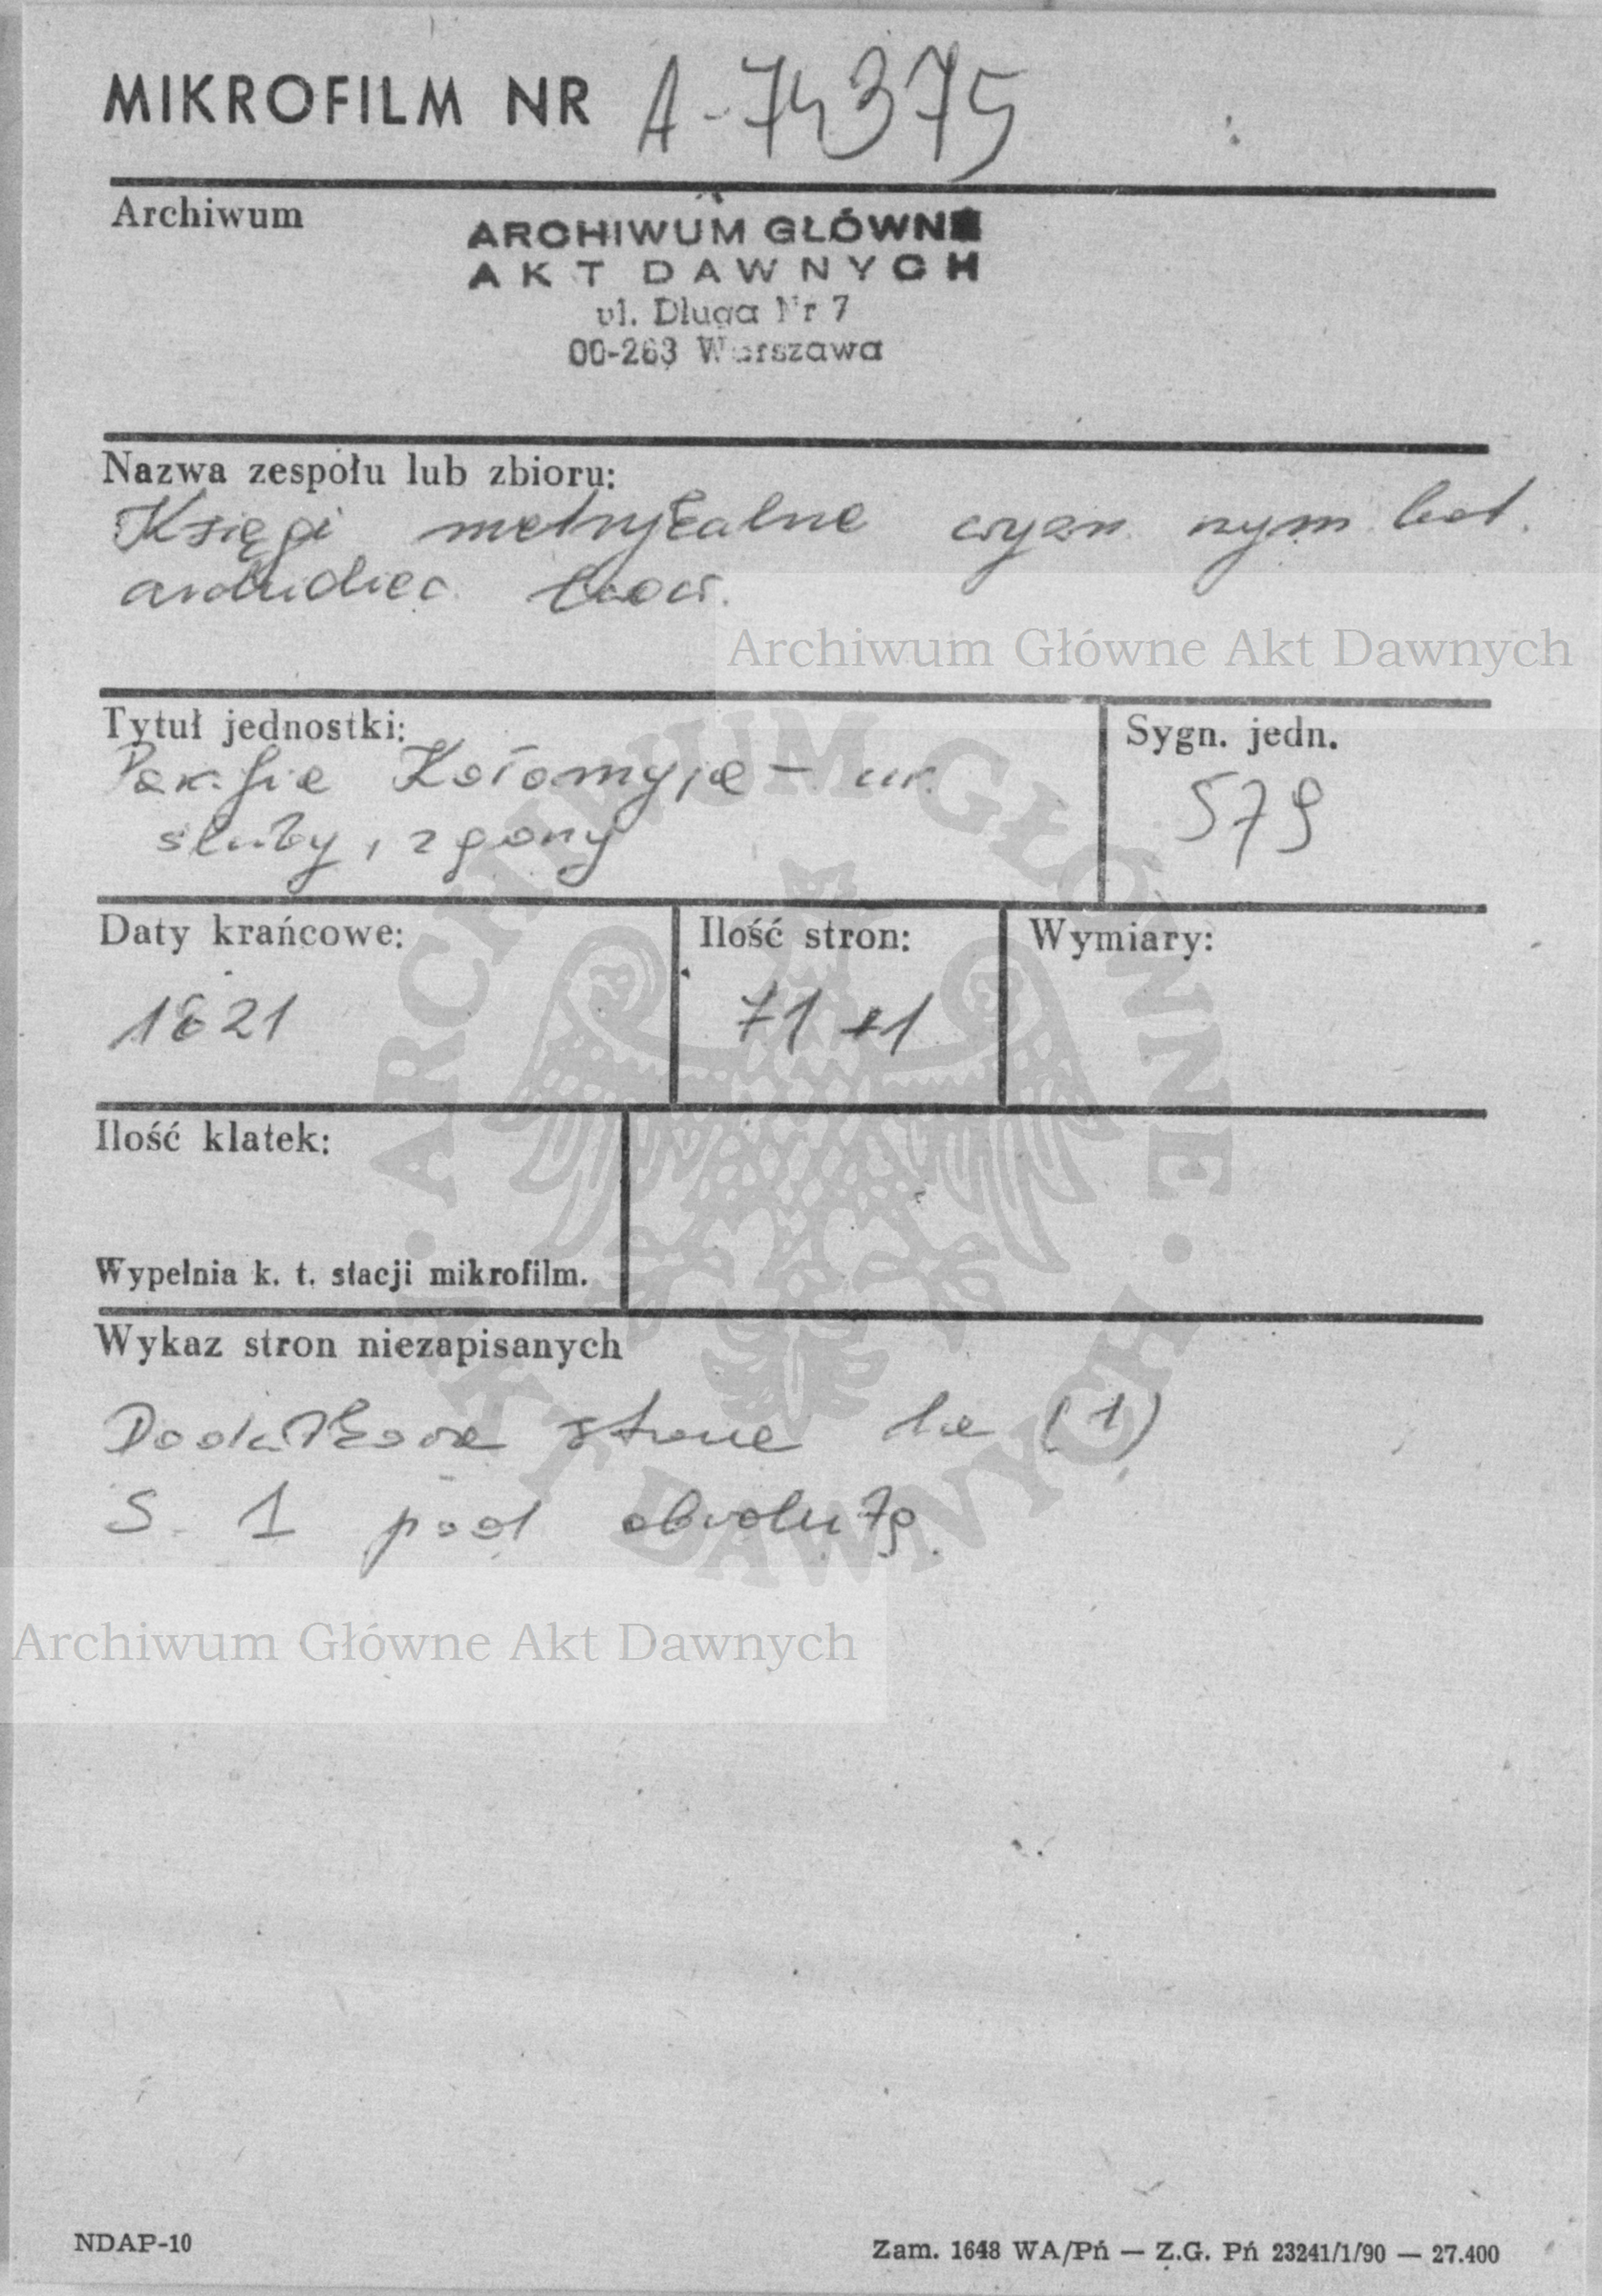 MIKROFILM NR A-74375
Archiwum
ARCHIWUM GŁÓWNE
AKT DAWNYCH
ul. Długa Nr 7
00-263 Warszawa
Nazwa zespołu lub zbioru:
Księgi metrykalne wyzn. rzym. kat.
archidiec. lwow.
Archiwum Główne Akt Dawnych
Tytuł jednostki:
Parafia Kołomyja — ur.
śluby, zgony
Sygn. jedn.
579
Daty krańcowe:
1821
Ilość stron:
71+1
Wymiary:
Ilość klatek:
Wypełnia k. t. stacji mikrofilm.
Wykaz stron niezapisanych
Dodatkowa strona 1a (1)
S. 1 pod obwolutą.
Archiwum Główne Akt Dawnych
ARCHIWUM GŁÓWNE
AKT DAWNYCH
NDAP-10
Zam. 1648 WA/Pń — Z.G. Pń 23241/1/90 — 27.400